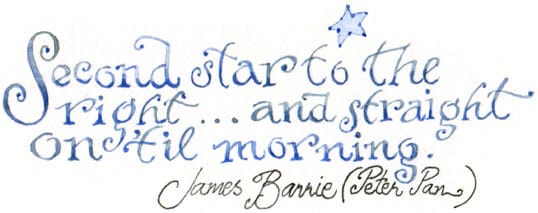 Second star to the
right... and straight
on 'til morning.
James Barrie (Peter Pan)